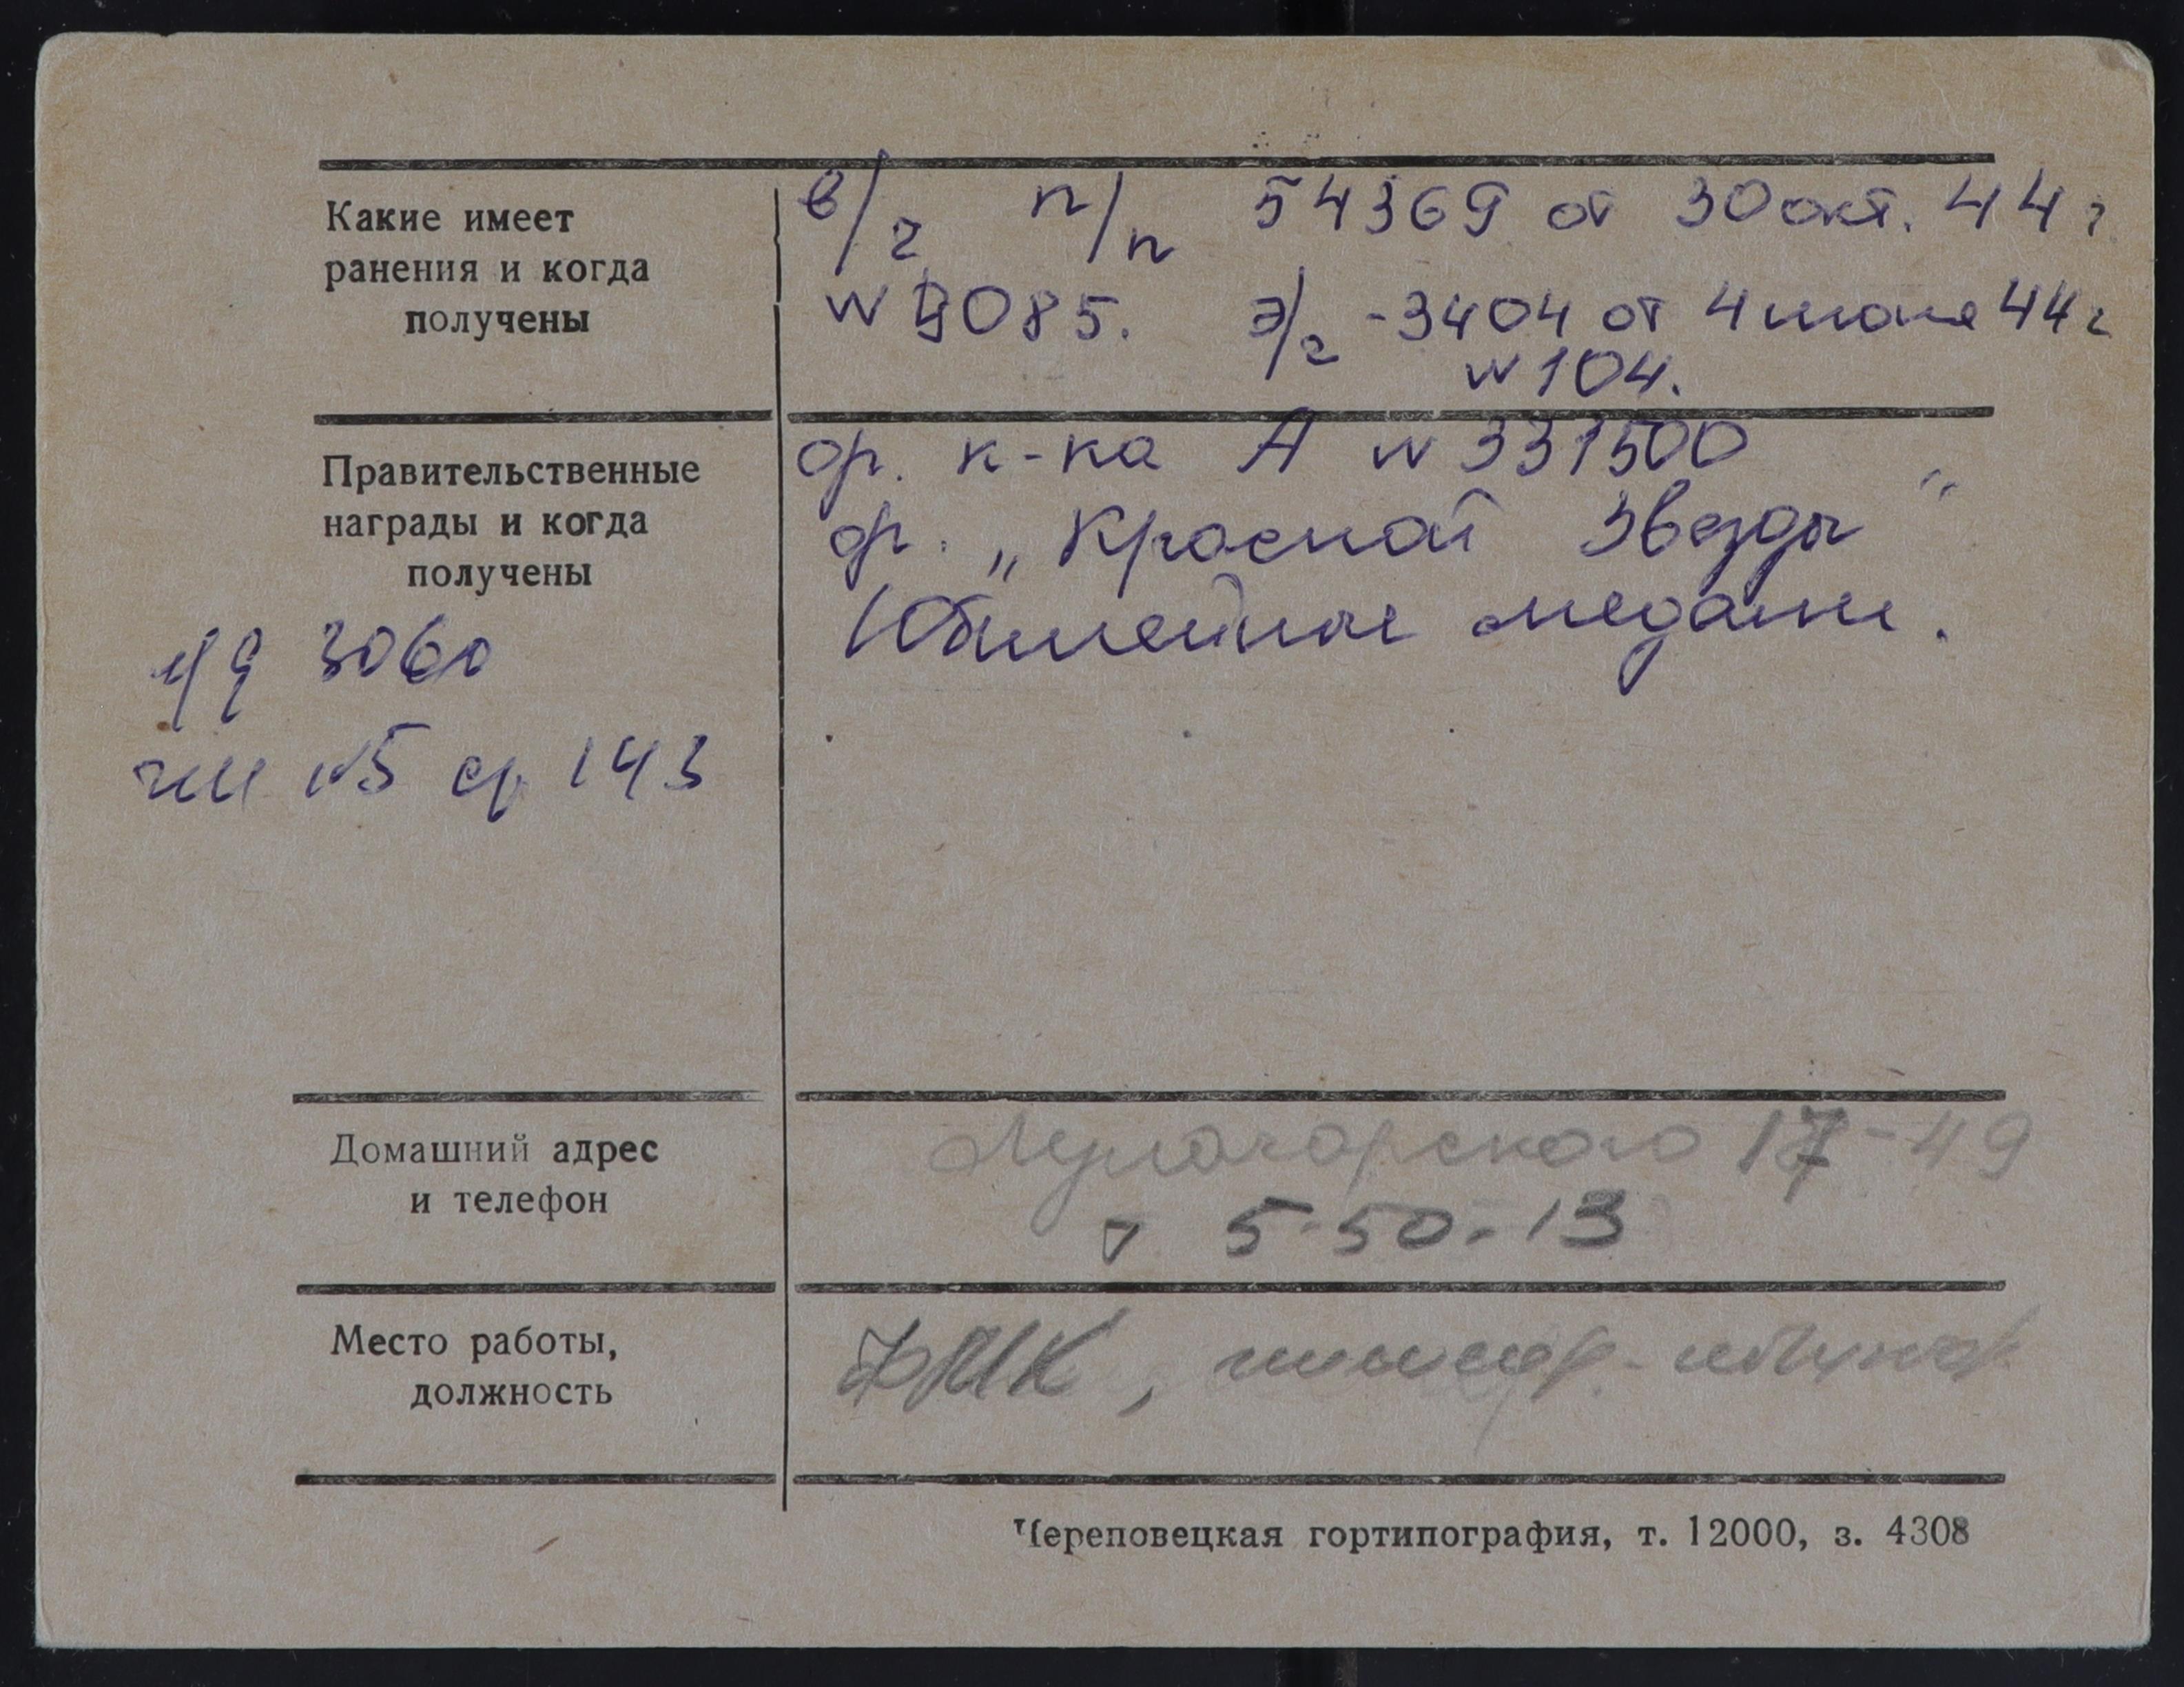 Какие имеет
ранения и когда
получены
в/ч п/п 54369 от 30 окт. 44 г
№ 9085. э/г -3404 от 4 июня 44 г
№ 104.
Правительственные
награды и когда
получены
ор. к-ка А № 331500
ор. „Красной Звезды"
Юбилейные медали.
3060
№5 ср 143
Домашний адрес
и телефон
Луначарского 17-49
т 5-50-13
Место работы,
должность
ФМК,
Череповецкая гортипография, т. 12000, з. 4308